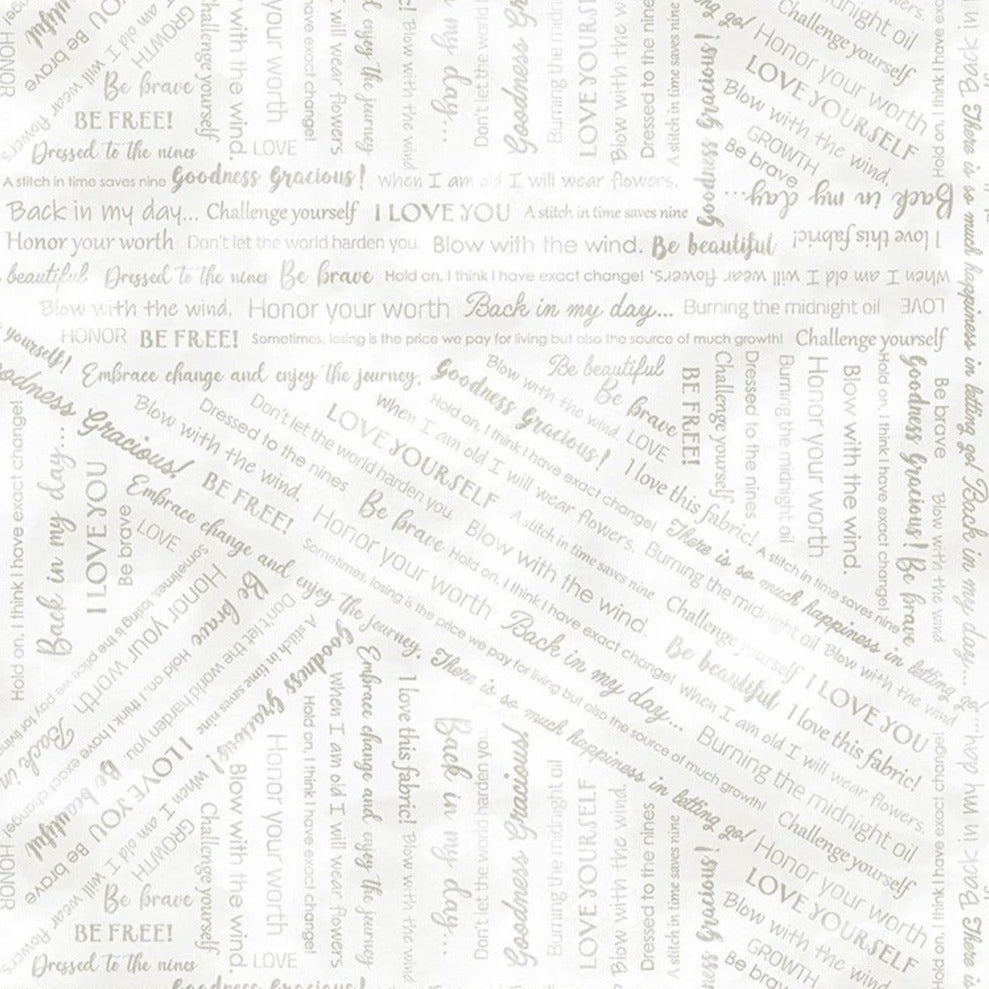 BE FREE!
Dressed to the nines
LOVE
A stitch in time saves nine Goodness Gracious! When I am old I will wear flowers.
Back in my day... Challenge yourself I LOVE YOU A stitch in time saves nine
Honor your worth Don't let the world harden you. Blow with the wind. Be beautiful I love this fabric!
beautiful Dressed to the nines Be brave Hold on, I think I have exact change! When I am old I will wear flowers.
Blow with the wind. Honor your worth Back in my day... Burning the midnight oil LOVE
HONOR BE FREE! Sometimes, losing is the price we pay for living but also the source of much growth! Challenge yourself
yourself! Embrace change and enjoy the journey. Goodness Gracious!
Be beautiful
Blow with the wind. LOVE
Be brave
BE FREE!
Challenge yourself
Dressed to the nines
Burning the midnight oil
Honor your worth
Blow with the wind.
Hold on, I think I have exact change!
Goodness Gracious! Be brave
Be brave
Blow with the wind
Goodness Gracious!
Blow with the wind.
BE FREE!
Dressed to the nines
Don't let the world harden you.
LOVE YOURSELF
When I am old I will wear flowers.
Hold on, I think I have exact change!
I love this fabric!
A stitch in time saves nine
Embrace change and enjoy the journey.
Honor your worth
Be brave
Hold on, I think I have exact change!
Blow with the wind.
A stitch in time saves nine
Burning the midnight oil
There is so much happiness in letting go!
Sometimes, losing is the price we pay for living but also the source of much growth!
Back in my day...
When I am old I will wear flowers.
Be beautiful
Challenge yourself
I LOVE YOU
Blow with the wind
I love this fabric!
There is so much happiness in letting go!
Burning the midnight oil
Challenge yourself
Honor your worth
LOVE YOURSELF
Blow with the wind.
GROWTH
Be brave
Hold on, I think I have exact change!
Back in my day...
I LOVE YOU
Be brave
LOVE
Honor your worth
Be brave
Hold on, I think I have exact change!
Don't let the world harden you.
A stitch in time saves nine
Goodness Gracious!
I LOVE YOU
When I am old I will wear flowers
GROWTH
Be brave
HONOR
Be brave
BE FREE!
Dressed to the nines
Challenge yourself
Blow with the wind.
Honor your worth
LOVE
Hold on, I think I have exact change!
When I am old I will wear flowers
Embrace change and enjoy the journey
I love this fabric!
Blow with the wind
Back in my day...
Don't let the world harden you.
Goodness Gracious!
Burning the midnight oil
LOVE YOURSELF
Blow with the wind.
Dressed to the nines
A stitch in time saves nine
Gracious!
There is so much happiness in letting go! Back in my day...